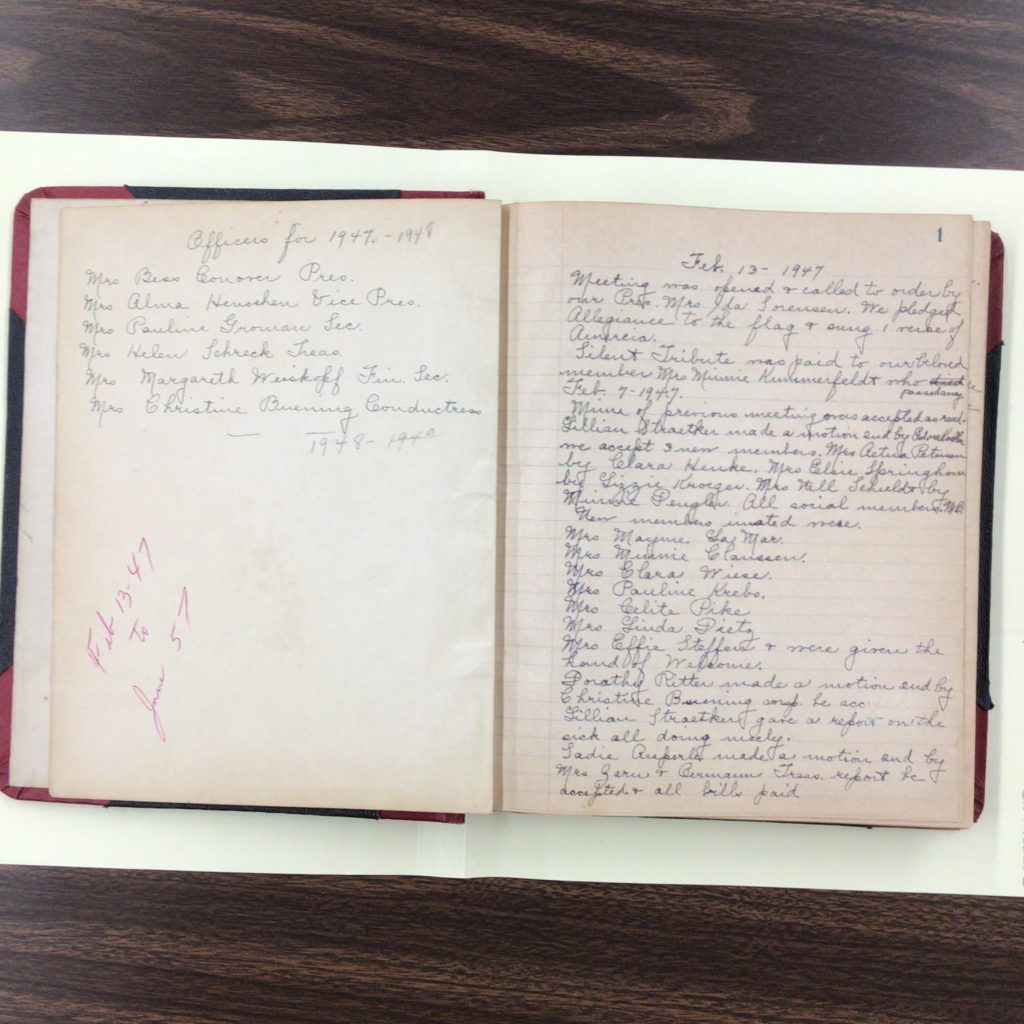 Officers for 1947 - 1948
Mrs Bess Conover Pres.
Mrs Alma Henschen Vice Pres.
Mrs Pauline Groman Sec.
Mrs Helen Schreck Treas.
Mrs Margareth Weiskopf Fin. Sec.
Mrs Christine Buening Conductress
1948 - 194
Feb 13-47
to
June 57
1
Feb. 13 - 1947
Meeting was opened & called to order by
our Pres. Mrs Ida Sorensen. We pledged
Allegiance to the flag & sung 1 verse of
Amercia.
Silent Tribute was paid to our beloved
member Mrs Minnie Kummerfeldt who
Feb. 7-1947.
of previous meeting was accepted as read.
Lillian Straetker made a motion snd by
we accept 3 new members. Mrs Petersen
by Clara Henke. Mrs Elsie Springhorn
by Lizzie Kroeger. Mrs Nell Schieldt by
Minnie Pengler. All social members.
New members were.
Mrs Mayme La Mar.
Mrs Minnie Claussen.
Mrs Clara Wiese.
Mrs Pauline Krebs.
Mrs Celite Pike
Mrs Linda Dietz
Mrs Effie Steffens & were given the
hand of Welcome.
Dorathy Ritter made a motion snd by
Christine Buening be acc
Lillian Straetker gave a report on the
sick all doing nicely.
Sadie made a motion snd by
Mrs Treas. report be
accepted & all bills paid